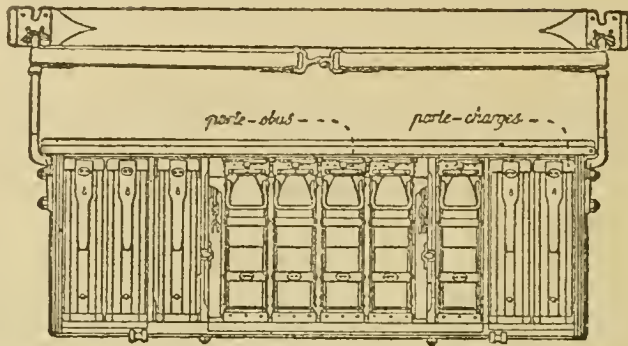 porte-obus
porte-charges